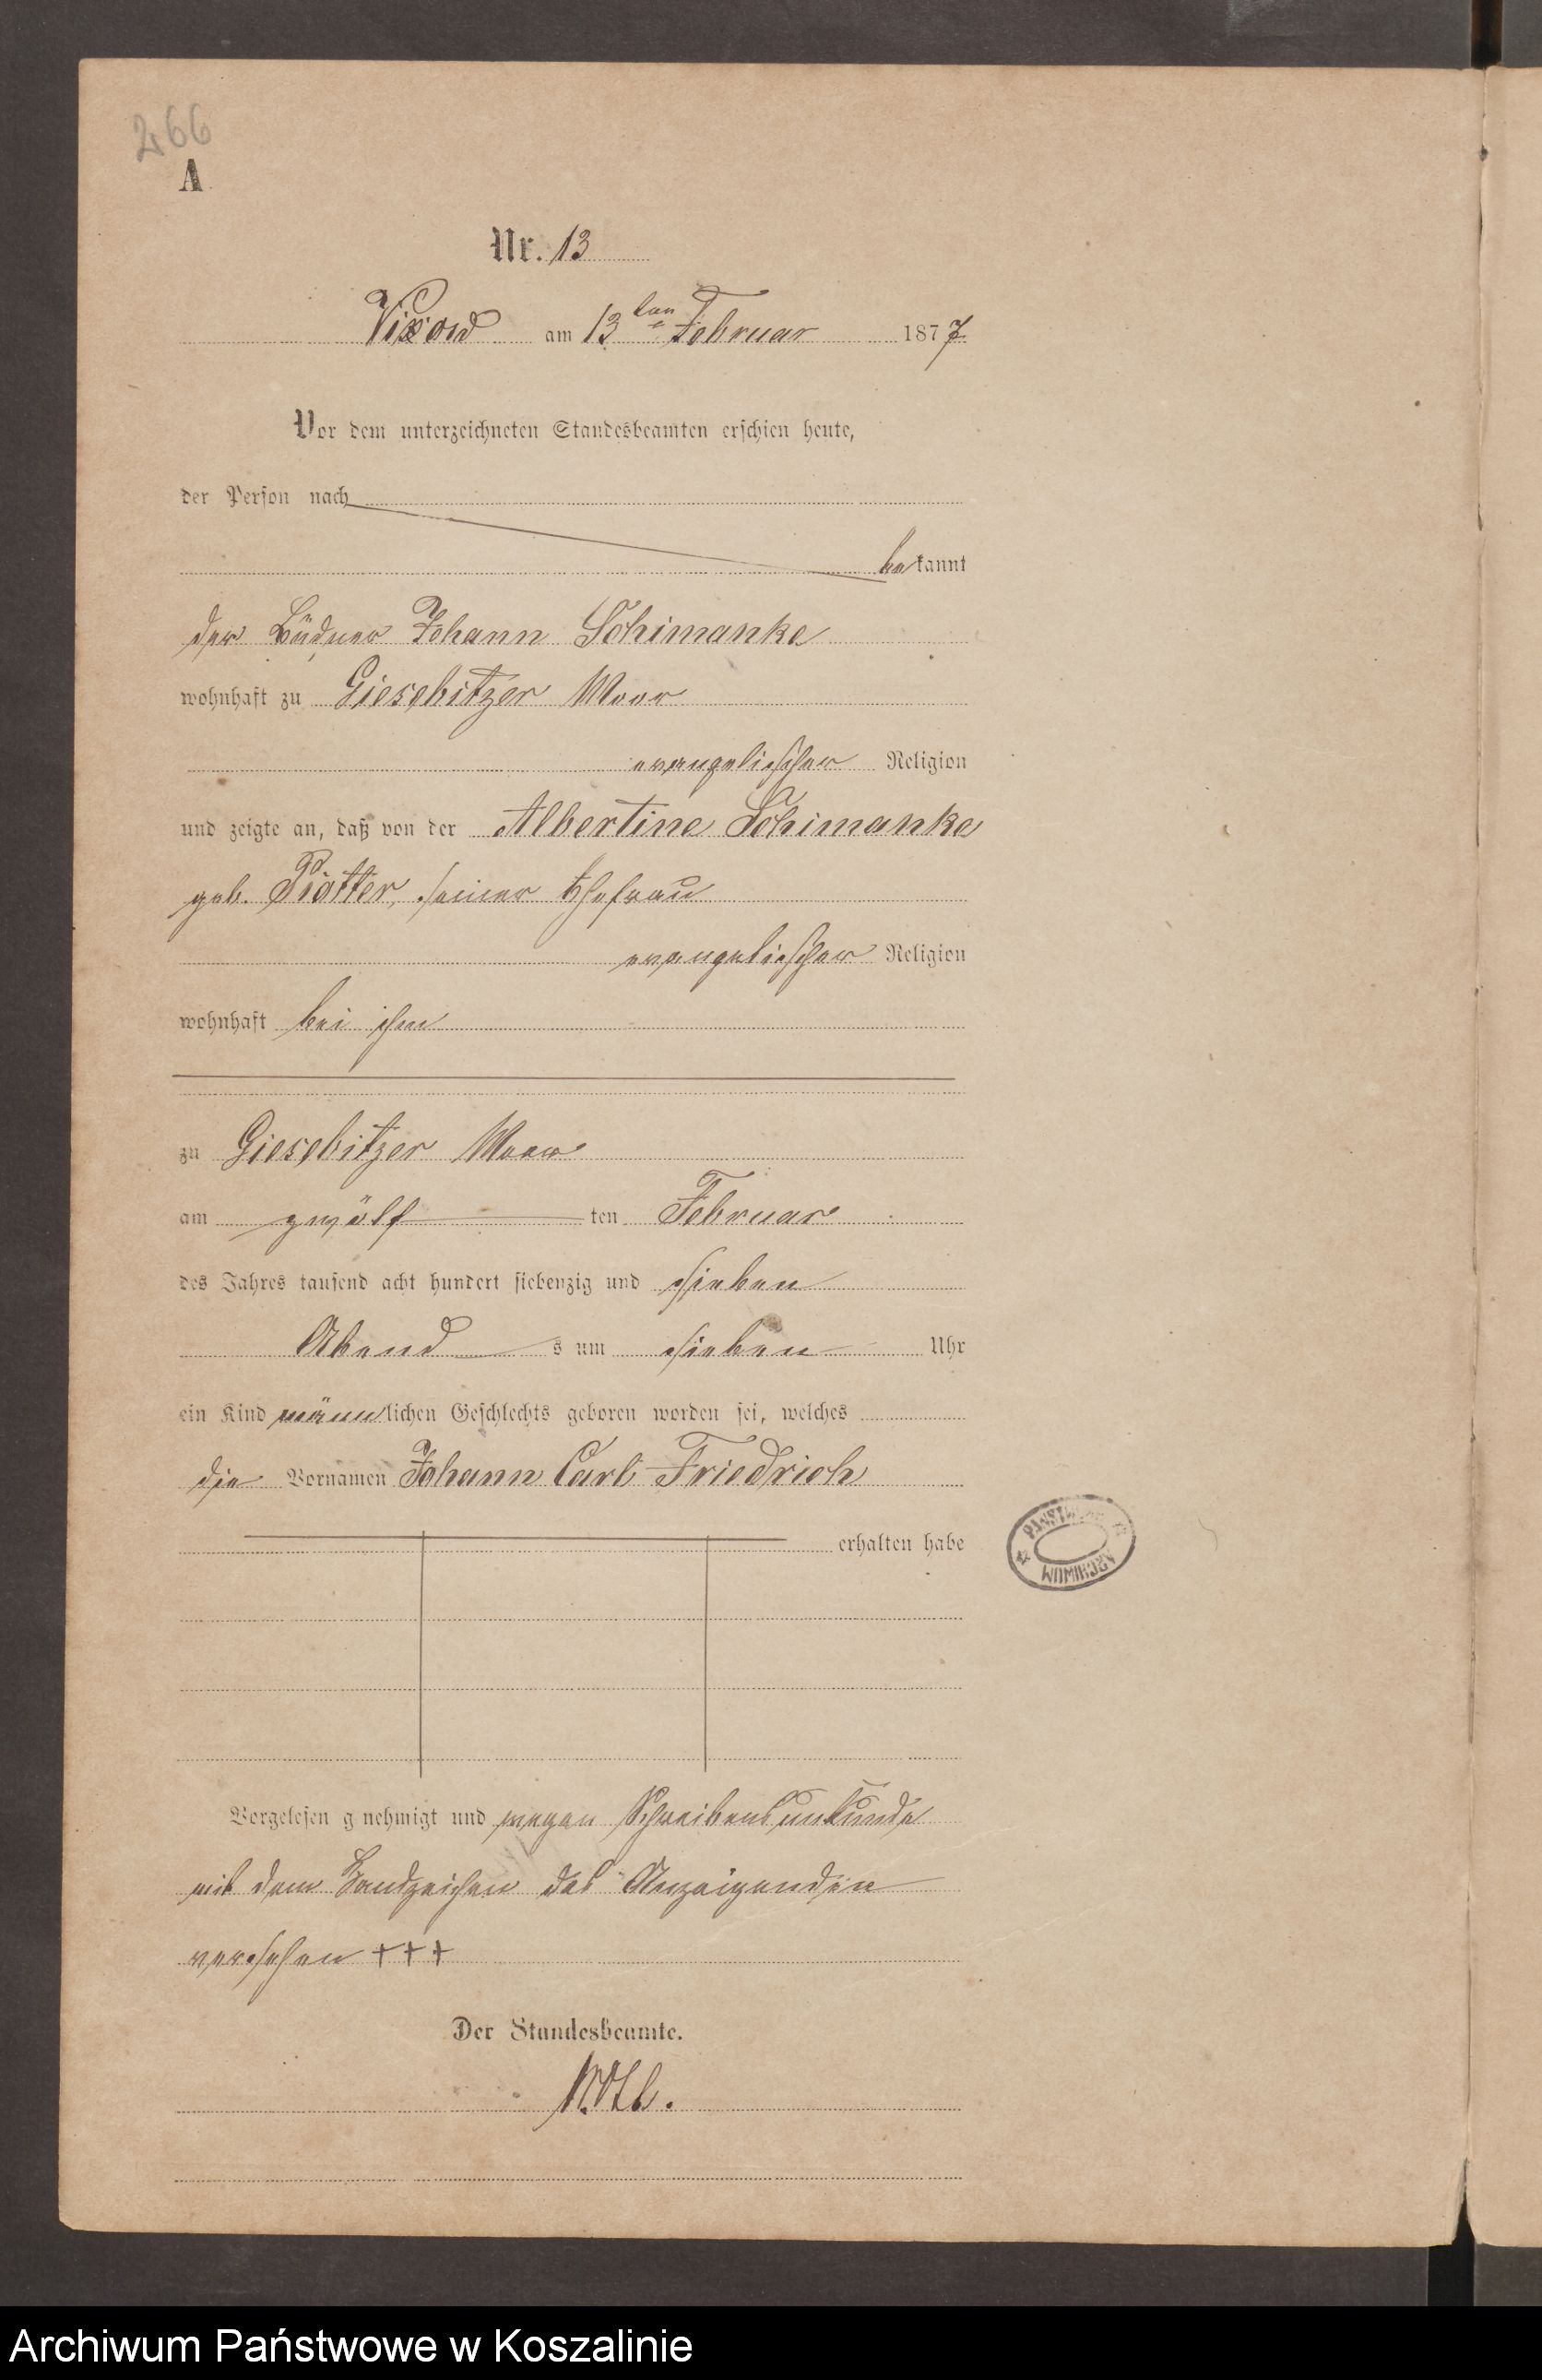 266
A
Nr. 13
Vixow am 13ten Februar 1877
Vor dem unterzeichneten Standesbeamten erschien heute,
der Person nach
bekannt
der Büdner Johann Schimanke
wohnhaft zu Giesebitzer Moor
evangelischer Religion
und zeigte an, daß von der Albertine Schimanke
geb. Piotter, seiner Ehefrau
evangelischer Religion
wohnhaft bei ihm
zu Giesebitzer Moor
am zwölf ten Februar
des Jahres tausend acht hundert siebenzig und sieben
Abend s um sieben Uhr
ein Kind männlichen Geschlechts geboren worden sei, welches
die Vornamen Johann Carl Friedrich
erhalten habe
Vorgelesen g nehmigt und wegen Schreibensunkunde
mit dem Handzeichen des Anzeigenden
versehen +++
Der Standesbeamte.
ARCHIWUM
Archiwum Państwowe w Koszalinie